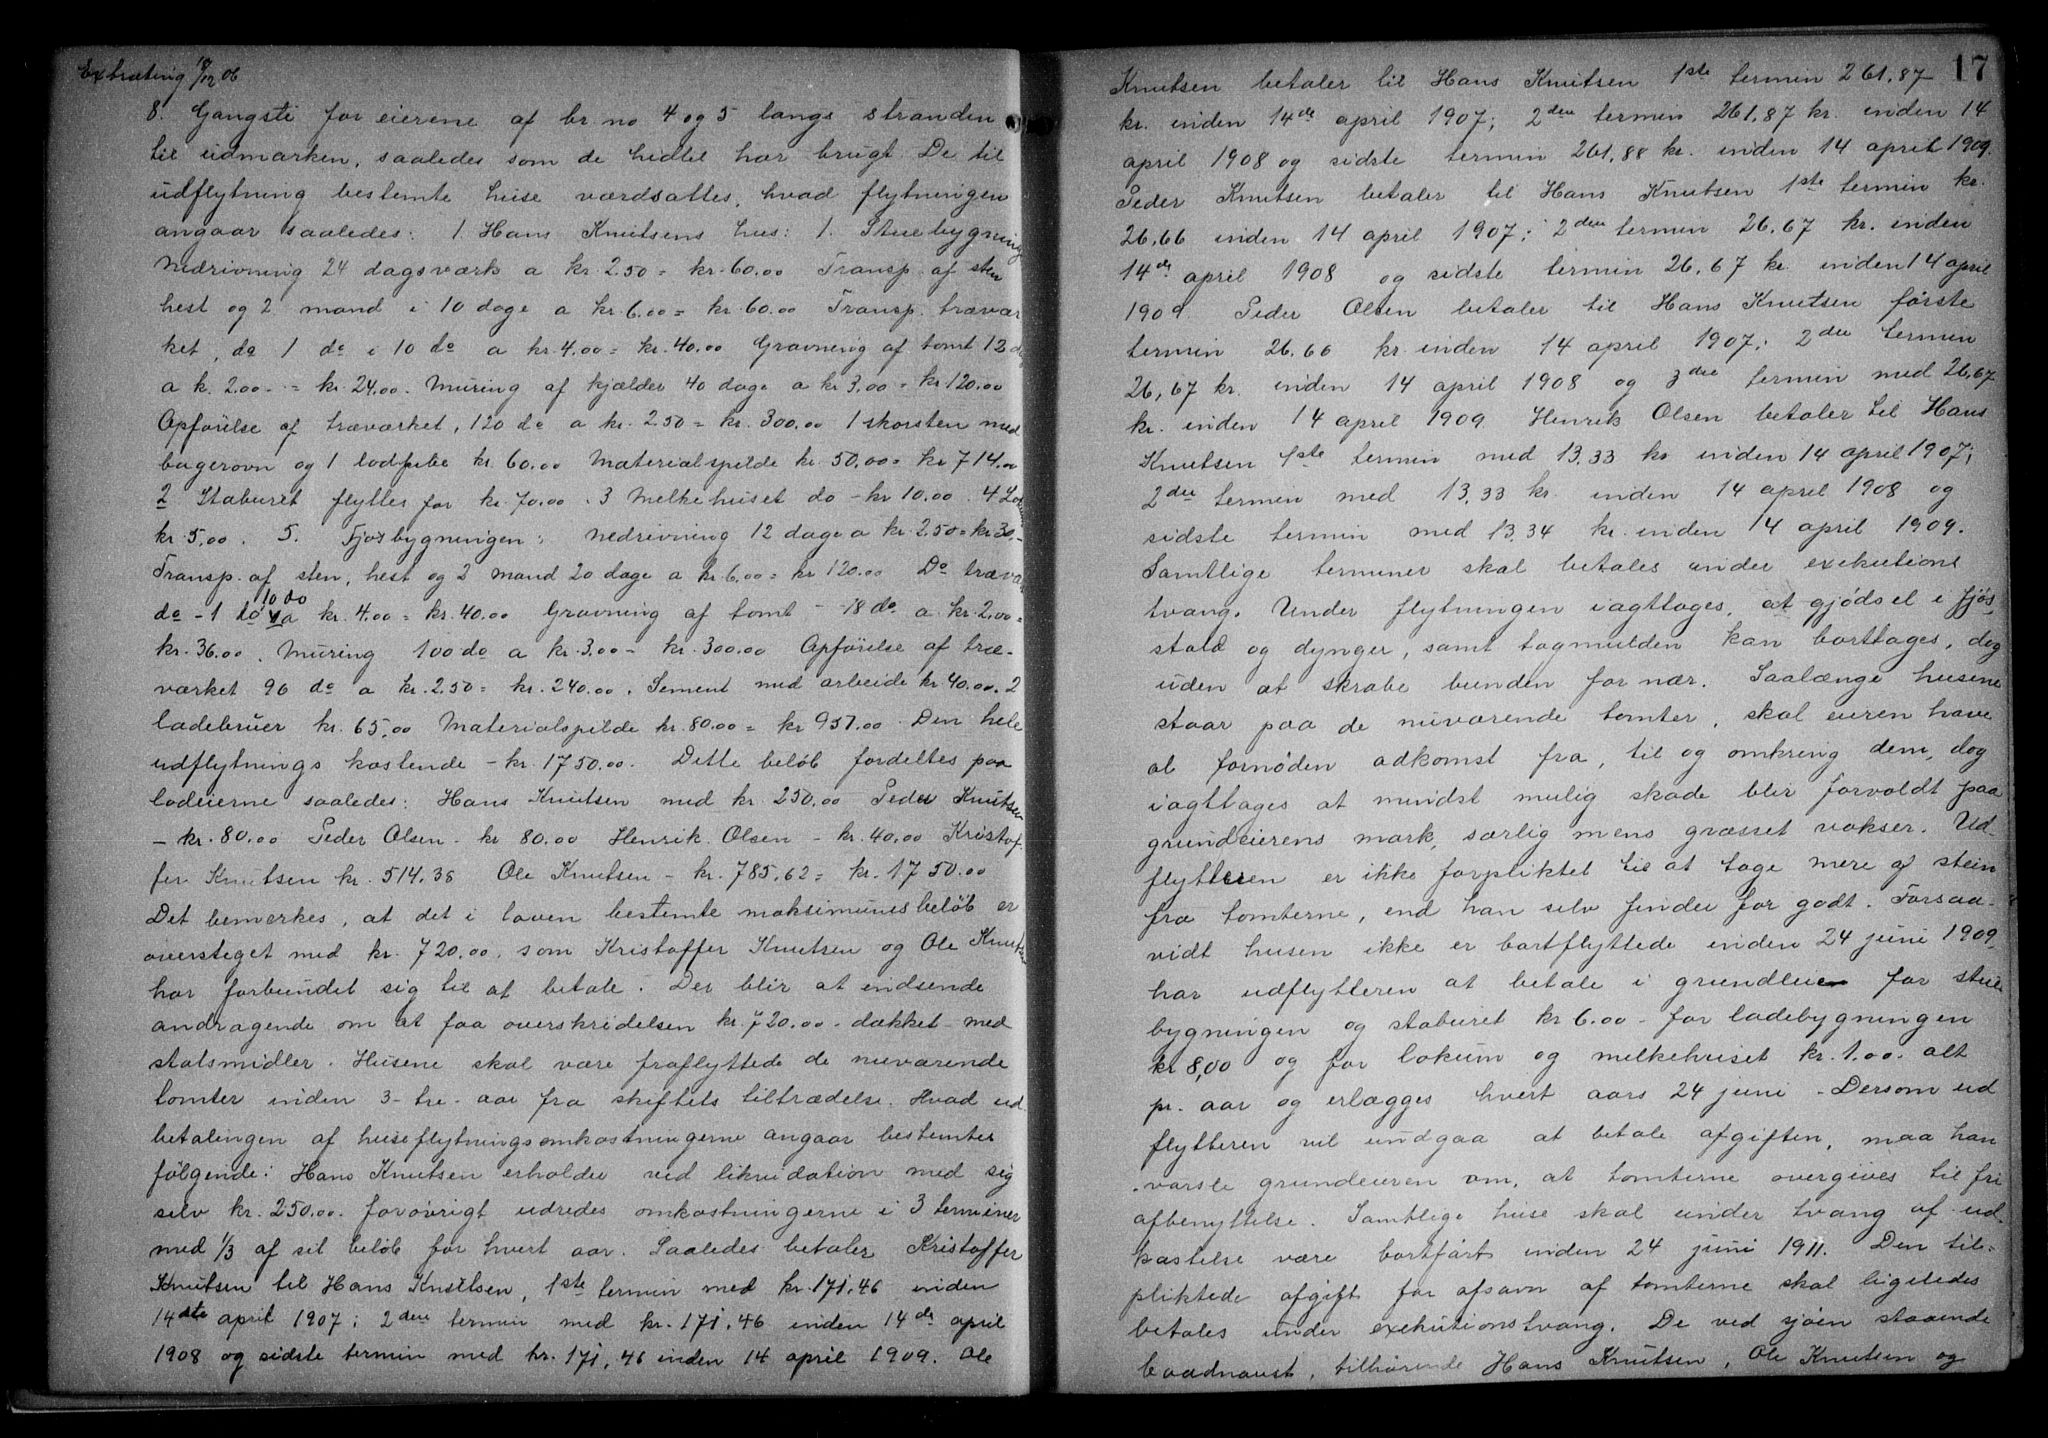 Extrating 10/12 06
8. Gangsti for eierene af br. no 4 og 5 langs stranden
til udmarken, saaledes som de hidtil har brugt. De til
udflytning bestemte huse værdsattes, hvad flytningen
angaar saaledes: 1. Hans Knutsens hus: 1. Stuebygning
Nedrivning 24 dagsværk a kr. 2.50 = kr. 60.00 Transp. af sten
hest og 2 mand i 10 dage a kr. 6.00 = kr. 60.00 Transp. trævær
ket, do 1 do i 10 do a kr. 4.00 = kr. 40.00 Gravning af tomt 12 dg
a k. 2.00 - = kr. 24.00. Muring af kjælder 40 dage a kr 3.00 = kr 120.00
Opførelse af træværket, 120 do a kr. 2.50 = kr. 300.00 1 skorsten med
bagerovn og 1 lodpibe kr. 60.00 Materialspilde kr. 50.00 = kr 714.00
2 Staburet flyttes for kr. 70.00. 3 Melkehuset do - kr 10.00. 4 Lokum
kr. 5.00. 5. Fjøsbygningen: Nedrivning 12 dage a kr. 2.50 = kr 30.-
Transp. af sten, hest og 2 mand 20 dage a kr 6.00 = kr 120.00 Do trævær
do - 1 do 10 do a kr. 4.00 = kr. 40.00 Gravning af tomt - 18 do a kr. 2.00 =
kr. 36.00. Muring 100 do a kr. 3.00 - kr. 300.00 Opførelse af træ-
værket 96 do a kr. 2.50 = kr. 240.00. Sement med arbeide kr 40.00. 2
ladebruer kr. 65.00 Materialspilde kr. 80.00 = kr 951.00. Den hele
udflytnings kostende - kr. 1750.00. Dette beløb fordeltes paa
lodeierne saaledes: Hans Knutsen med kr. 250.00 Peder Knutsen
- kr. 80.00 Peder Olsen - kr 80.00 Henrik Olsen - kr. 40.00 Kristof-
fer Knutsen kr. 514.38 Ole Knutsen - kr. 785.62 = kr. 1750.00
Det bemerkes, at det i loven bestemte maksimumsbeløb er
oversteget med kr. 720.00, som Kristoffer Knutsen og Ole Knutsen
har forbundet sig til at betale. Der blir at indsende
andragende om at faa overskridelsen kr. 720.00 - dækket med
statsmidler. Husene skal være fraflyttede de nuværende
tomter inden 3 - tre - aar fra skiftets tiltrædelse. Hvad ud-
betalingen af huseflytningsomkostningerne angaar bestemtes
følgende: Hans Knutsen erholder ved likvidation med sig
selv kr. 250.00. forøvrigt udredes omkostningerne i 3 terminer
med 1/3 af sit beløb for hvert aar. Saaledes betaler Kristoffer
Knutsen til Hans Knutsen, 1ste termin med kr. 171.46 inden
14de april 1907; 2den termin med kr. 171.46 inden 14de april
1908 og sidste termin med kr. 171.46 inden 14 april 1909. Ole
17
Knutsen betaler til Hans Knutsen 1ste termin 261.87
kr. inden 14de april 1907; 2den termin 261.87 kr. inden 14
april 1908 og sidste termin 261.88 kr. inden 14 april 1909.
Peder Knutsen betaler til Hans Knutsen 1ste termin kr.
26.66 inden 14 april 1907; 2den termin 26.67 kr. inden
14de april 1908 og sidste termin 26.67 kr. inden 14 april
1909. Peder Olsen betaler til Hans Knutsen første
termin 26.66 kr. inden 14 april 1907; 2den termin
26,67 kr. inden 14 april 1908 og 3die termin med 26.67
kr. inden 14 april 1909. Henrik Olsen betaler til Hans
Knutsen 1ste termin med 13.33 kr inden 14 april 1907;
2den termin med 13.33 kr. inden 14 april 1908 og
sidste termin med 13.34 kr. inden 14 april 1909.
Samtlige terminer skal betales under exekutions
tvang. Under flytningen iagttages, at gjødsel i fjøs,
stald og dynger, samt tagmulden kan borttages, dog
uden at skrabe bunden for nær. Saalænge husene
staar paa de nuværende tomter, skal eieren have
al fornøden adkomst fra, til og omkring dem, dog
iagttages at mindst mulig skade blir forvoldt paa
grundeierens mark, særlig mens græsset vokser. Ud-
flytteren er ikke forpliktet til at tage mere af stein
fra tomterne, end han selv finder for godt. Forsaa-
vidt husen ikke er bortflyttede inden 24 juni 1909,
har udflytteren at betale i grundleie for stue
bygningen og staburet kr 6.00 - for ladebygningen
kr 8,00 og for lokum og melkehuset kr. 1.00. alt
pr. aar og erlægges hvert aars 24 juni - Dersom ud
flytteren vil undgaa at betale afgiften, maa han
varsle grundeieren om, at tomterne overgives til fri
afbenyttelse. Samtlige huse skal under tvang af ud-
kastelse være bortført inden 24 juni 1911. Den til-
pliktede afgift for afsavn af tomterne skal ligeledes
betales under exekutionstvang. De ved sjøen staaende
baadnaust, tilhørende Hans Knutsen, Ole Knutsen og